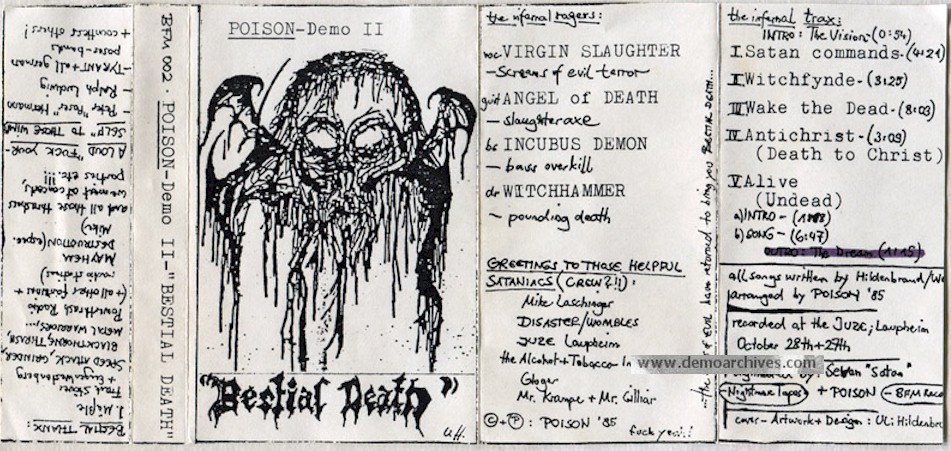 BESTIAL THANX:
Speed Attack, Grinder,
Blackthorne, Thrash,
Metal Warriors,...
Powerthrash Radio
(+ all other fanzines +
radio stations)
MAYHEM
DESTRUCTION (espec.
Mike)
and all those thrashers
we met at concerts,
parties etc. !!!
A LOUD "FUCK YOUR-
SELF" TO THOSE WIMPS
- Peter "Poser" Hormann
- Ralph Ludwig
- TYRANT + all german
poser-bands
+ countless others!
BFM 002 · POISON-Demo II-"BESTIAL DEATH"
POISON-Demo II
"Bestial Death"
U.H.
the infernal ragers:
voc VIRGIN SLAUGHTER
- screams of evil terror
guit ANGEL of DEATH
- slaughteraxe
bs INCUBUS DEMON
- bass overkill
dr WITCHHAMMER
- pounding death
GREETINGS TO THOSE HELPFUL
SATANIACS (CREW?!!):
Mike Laschinger
DISASTER/WOMBLES
JUZE Laupheim
the Alcohol+Tobacco In
Gloger
Mr. Krampe + Mr. Gilliar
©+Ⓟ: POISON '85
fuck yeah!
EVIL have returned to bring you BESTIAL DEATH...
the infernal trax:
INTRO: The Vision-(0:54)
I. Satan commands-(4:21)
II Witchfynde-(3:25)
III Wake the Dead-(8:03)
IV Antichrist-(3:09)
(Death to Christ)
V Alive
(Undead)
a) INTRO-
b) SONG-(6:47)
OUTRO: The Dream (1:15)
all songs written by Hildenbrand/
arranged by POISON '85
recorded at the JUZE, Laupheim
October 28th+27th
www.demoarchives.com
"Satan"
Nightmare Tapes + POISON
cover-Artwork+Design: Uli Hildenbr